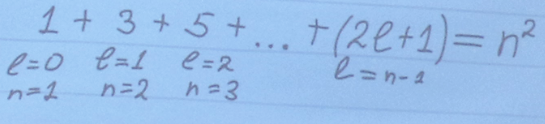 1 + 3 + 5 + ... + (2ℓ+1) = n²
ℓ=0 ℓ=1 ℓ=2 ℓ=n-1
n=1 n=2 n=3